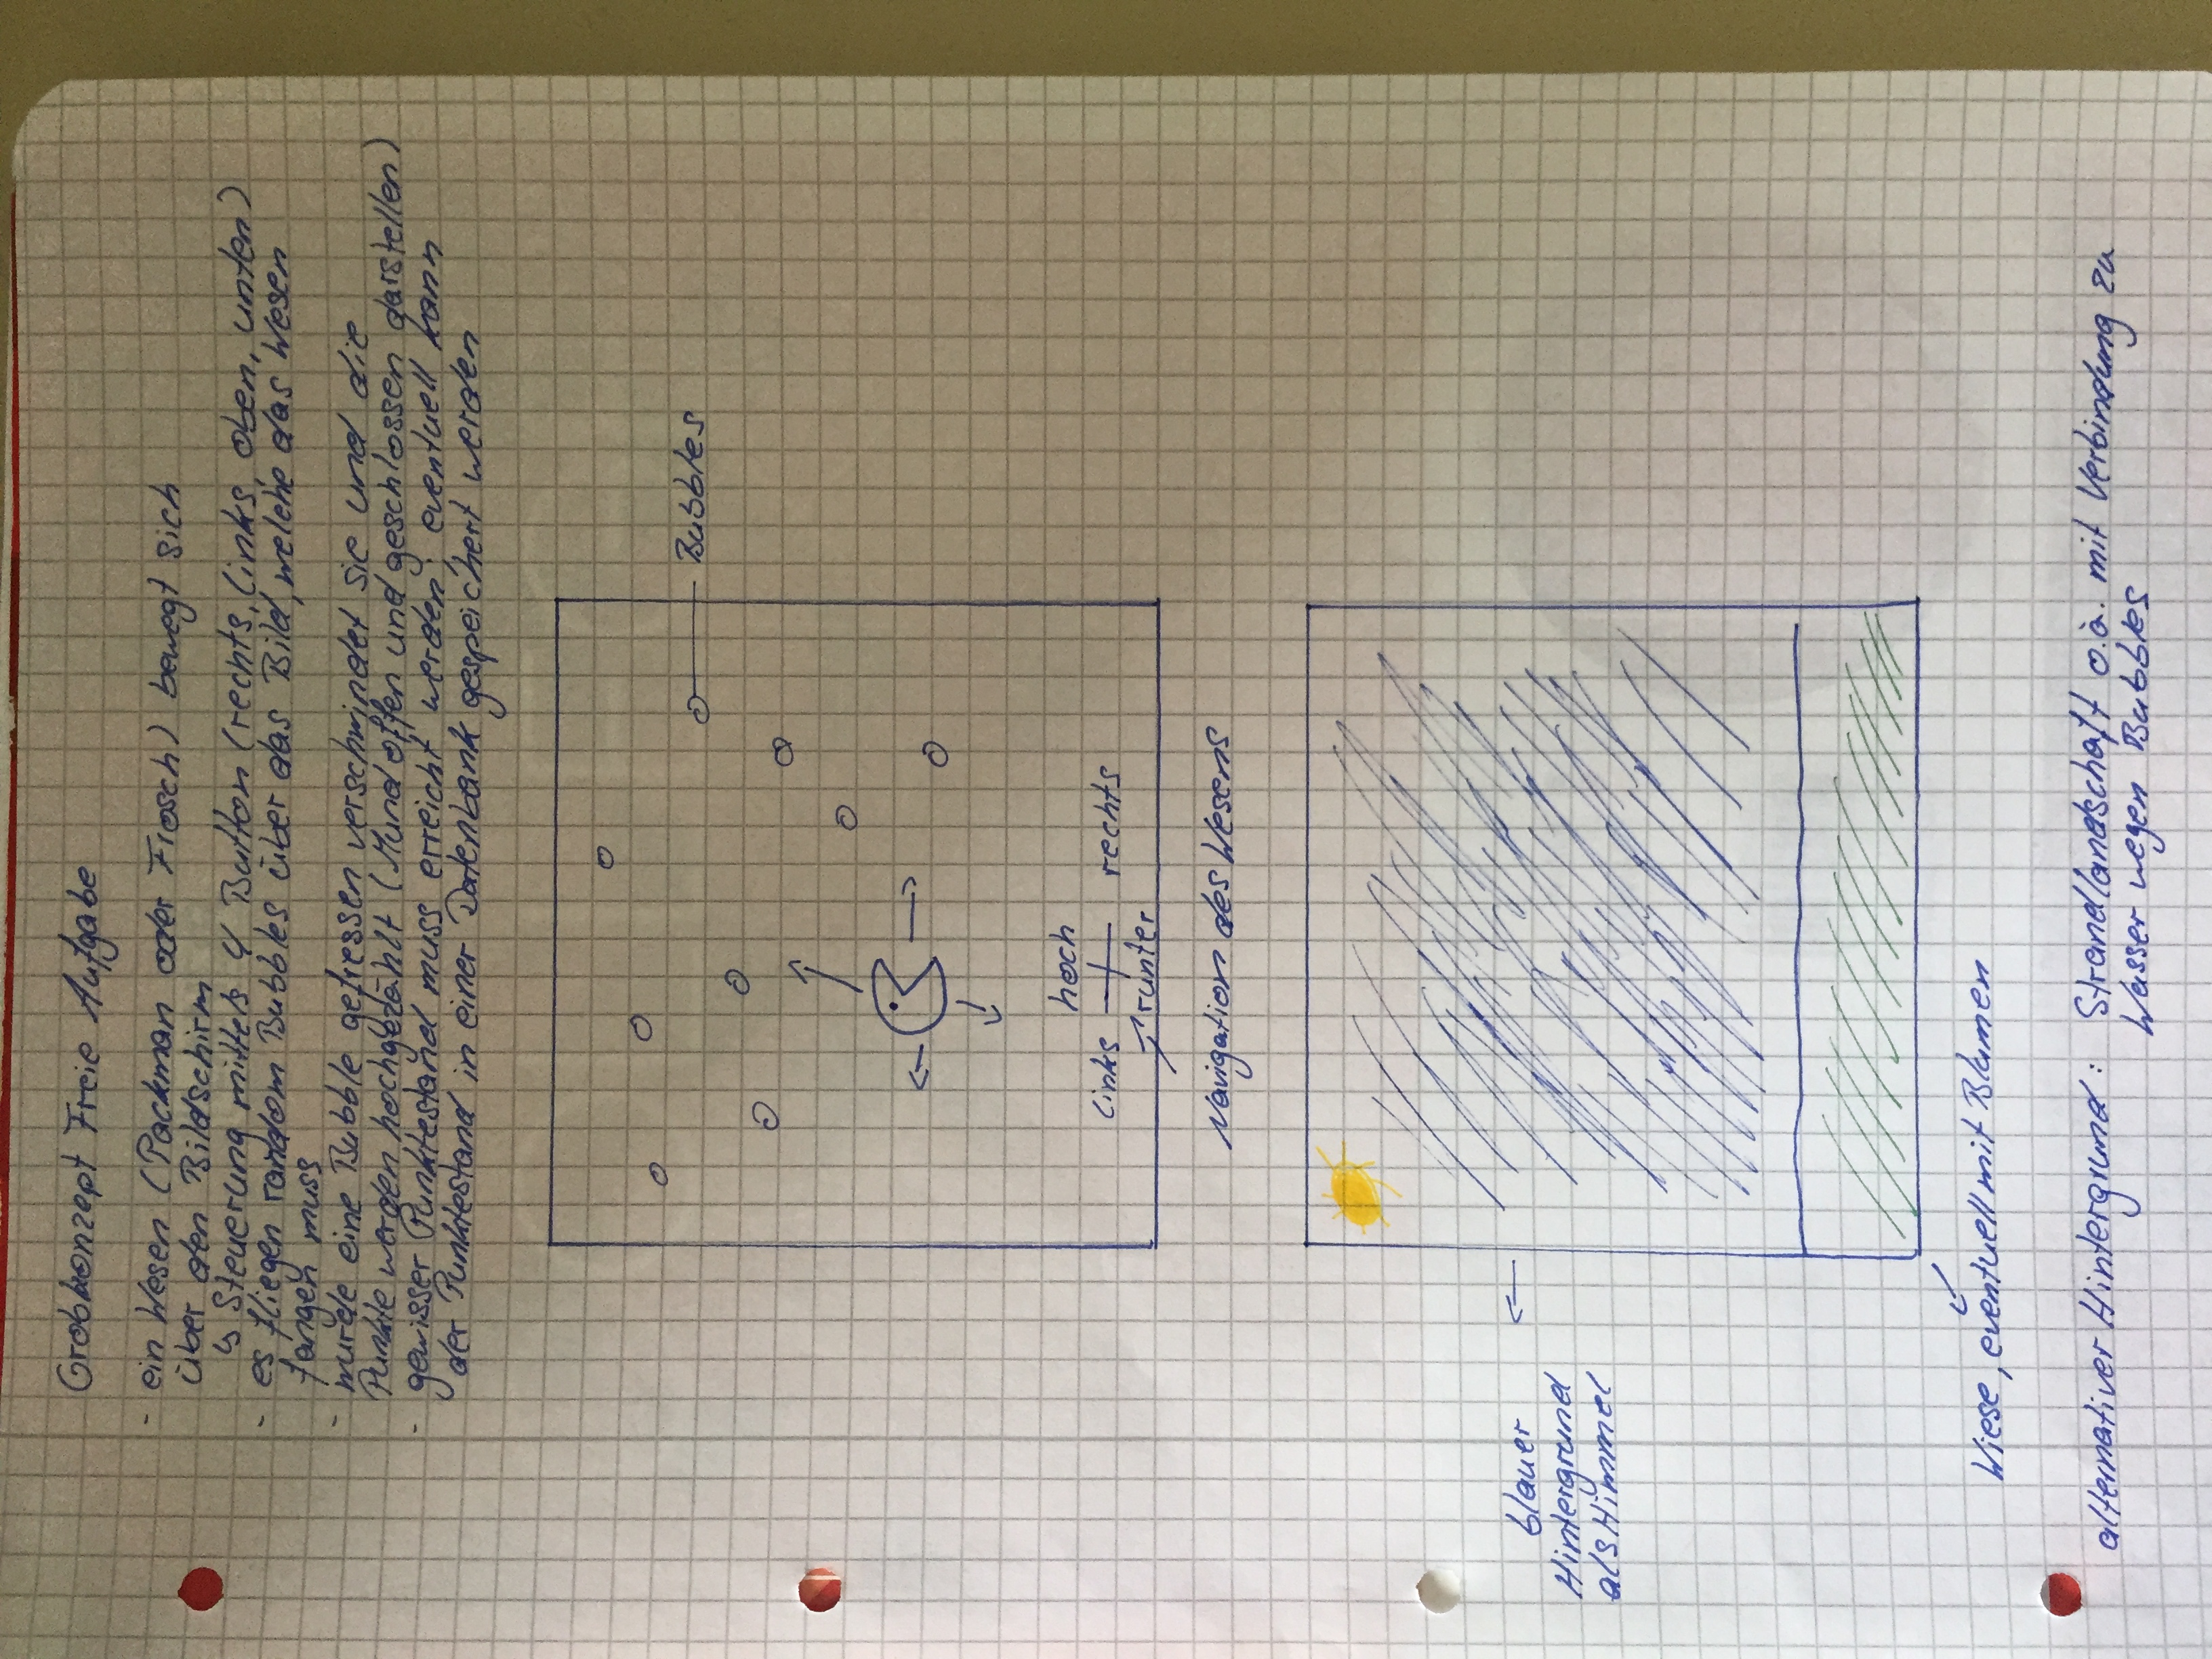 Grobkonzept Freie Aufgabe
- ein Wesen (Packman oder Frosch) bewegt sich
über den Bildschirm
↳ Steuerung mittels 4 Button (rechts, links, oben, unten)
- es fliegen random Bubbles über das Bild, welche das Wesen
fangen muss
- wurde eine Bubble gefressen verschwindet sie und die
Punkte werden hochgezählt (Mund offen und geschlossen darstellen)
- gewisser Punktestand muss erreicht werden; eventuell kann
der Punktestand in einer Datenbank gespeichert werden
Bubbles
hoch
links rechts
runter
Navigation des Wesens
blauer
Hintergrund
als Himmel
Wiese, eventuell mit Blumen
alternativer Hintergrund: Strandlandschaft o.ä. mit Verbindung zu
Wasser wegen Bubbles